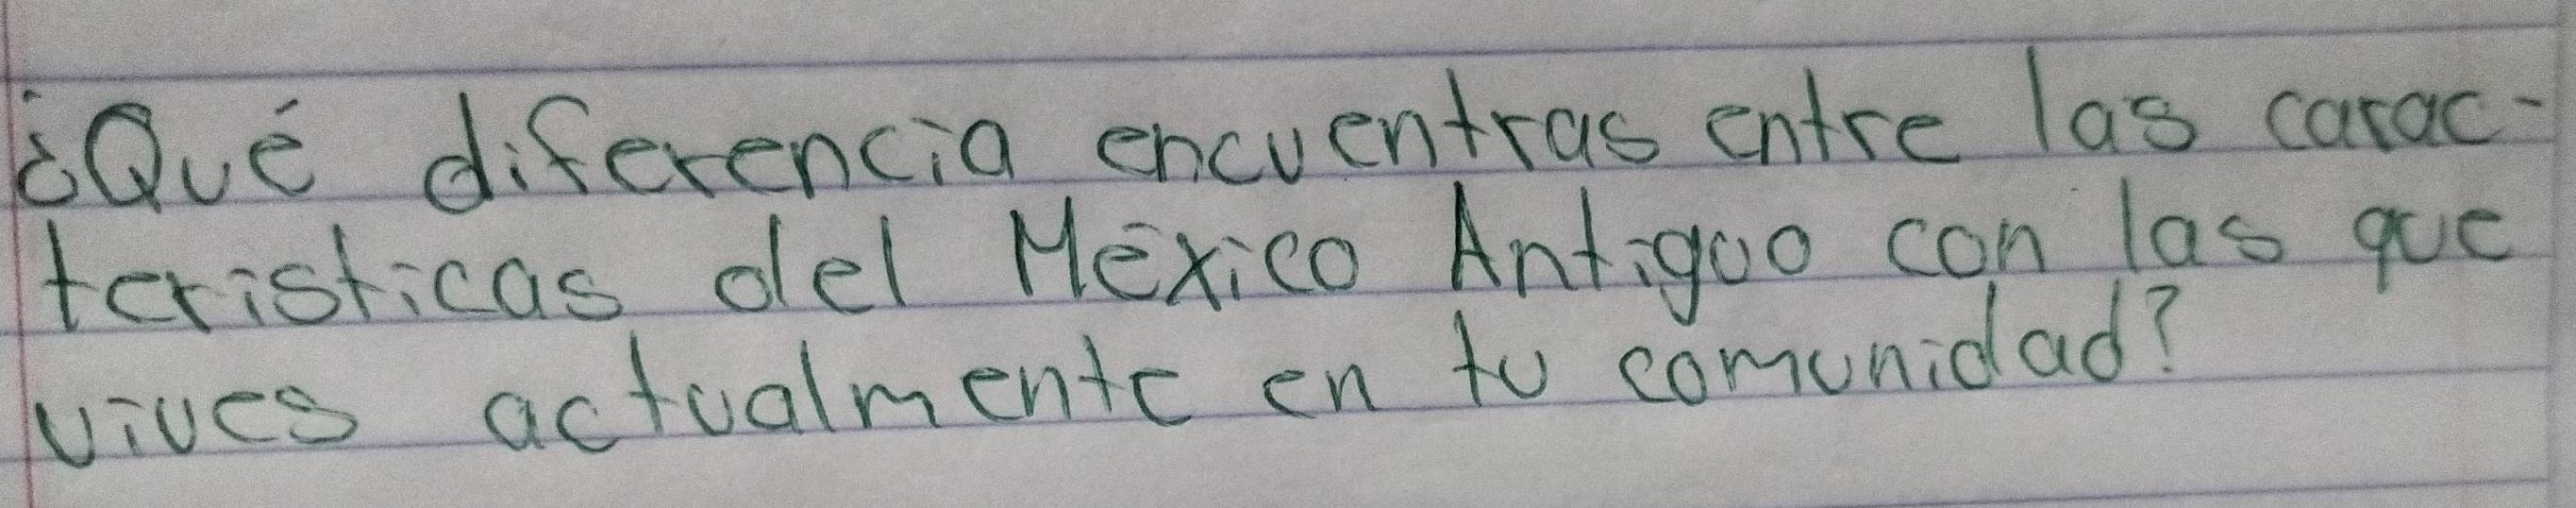 ¿Qué diferencia encuentras entre las carac-
teristicas del México Antiguo con las que
vives actualmente en tu comunidad?